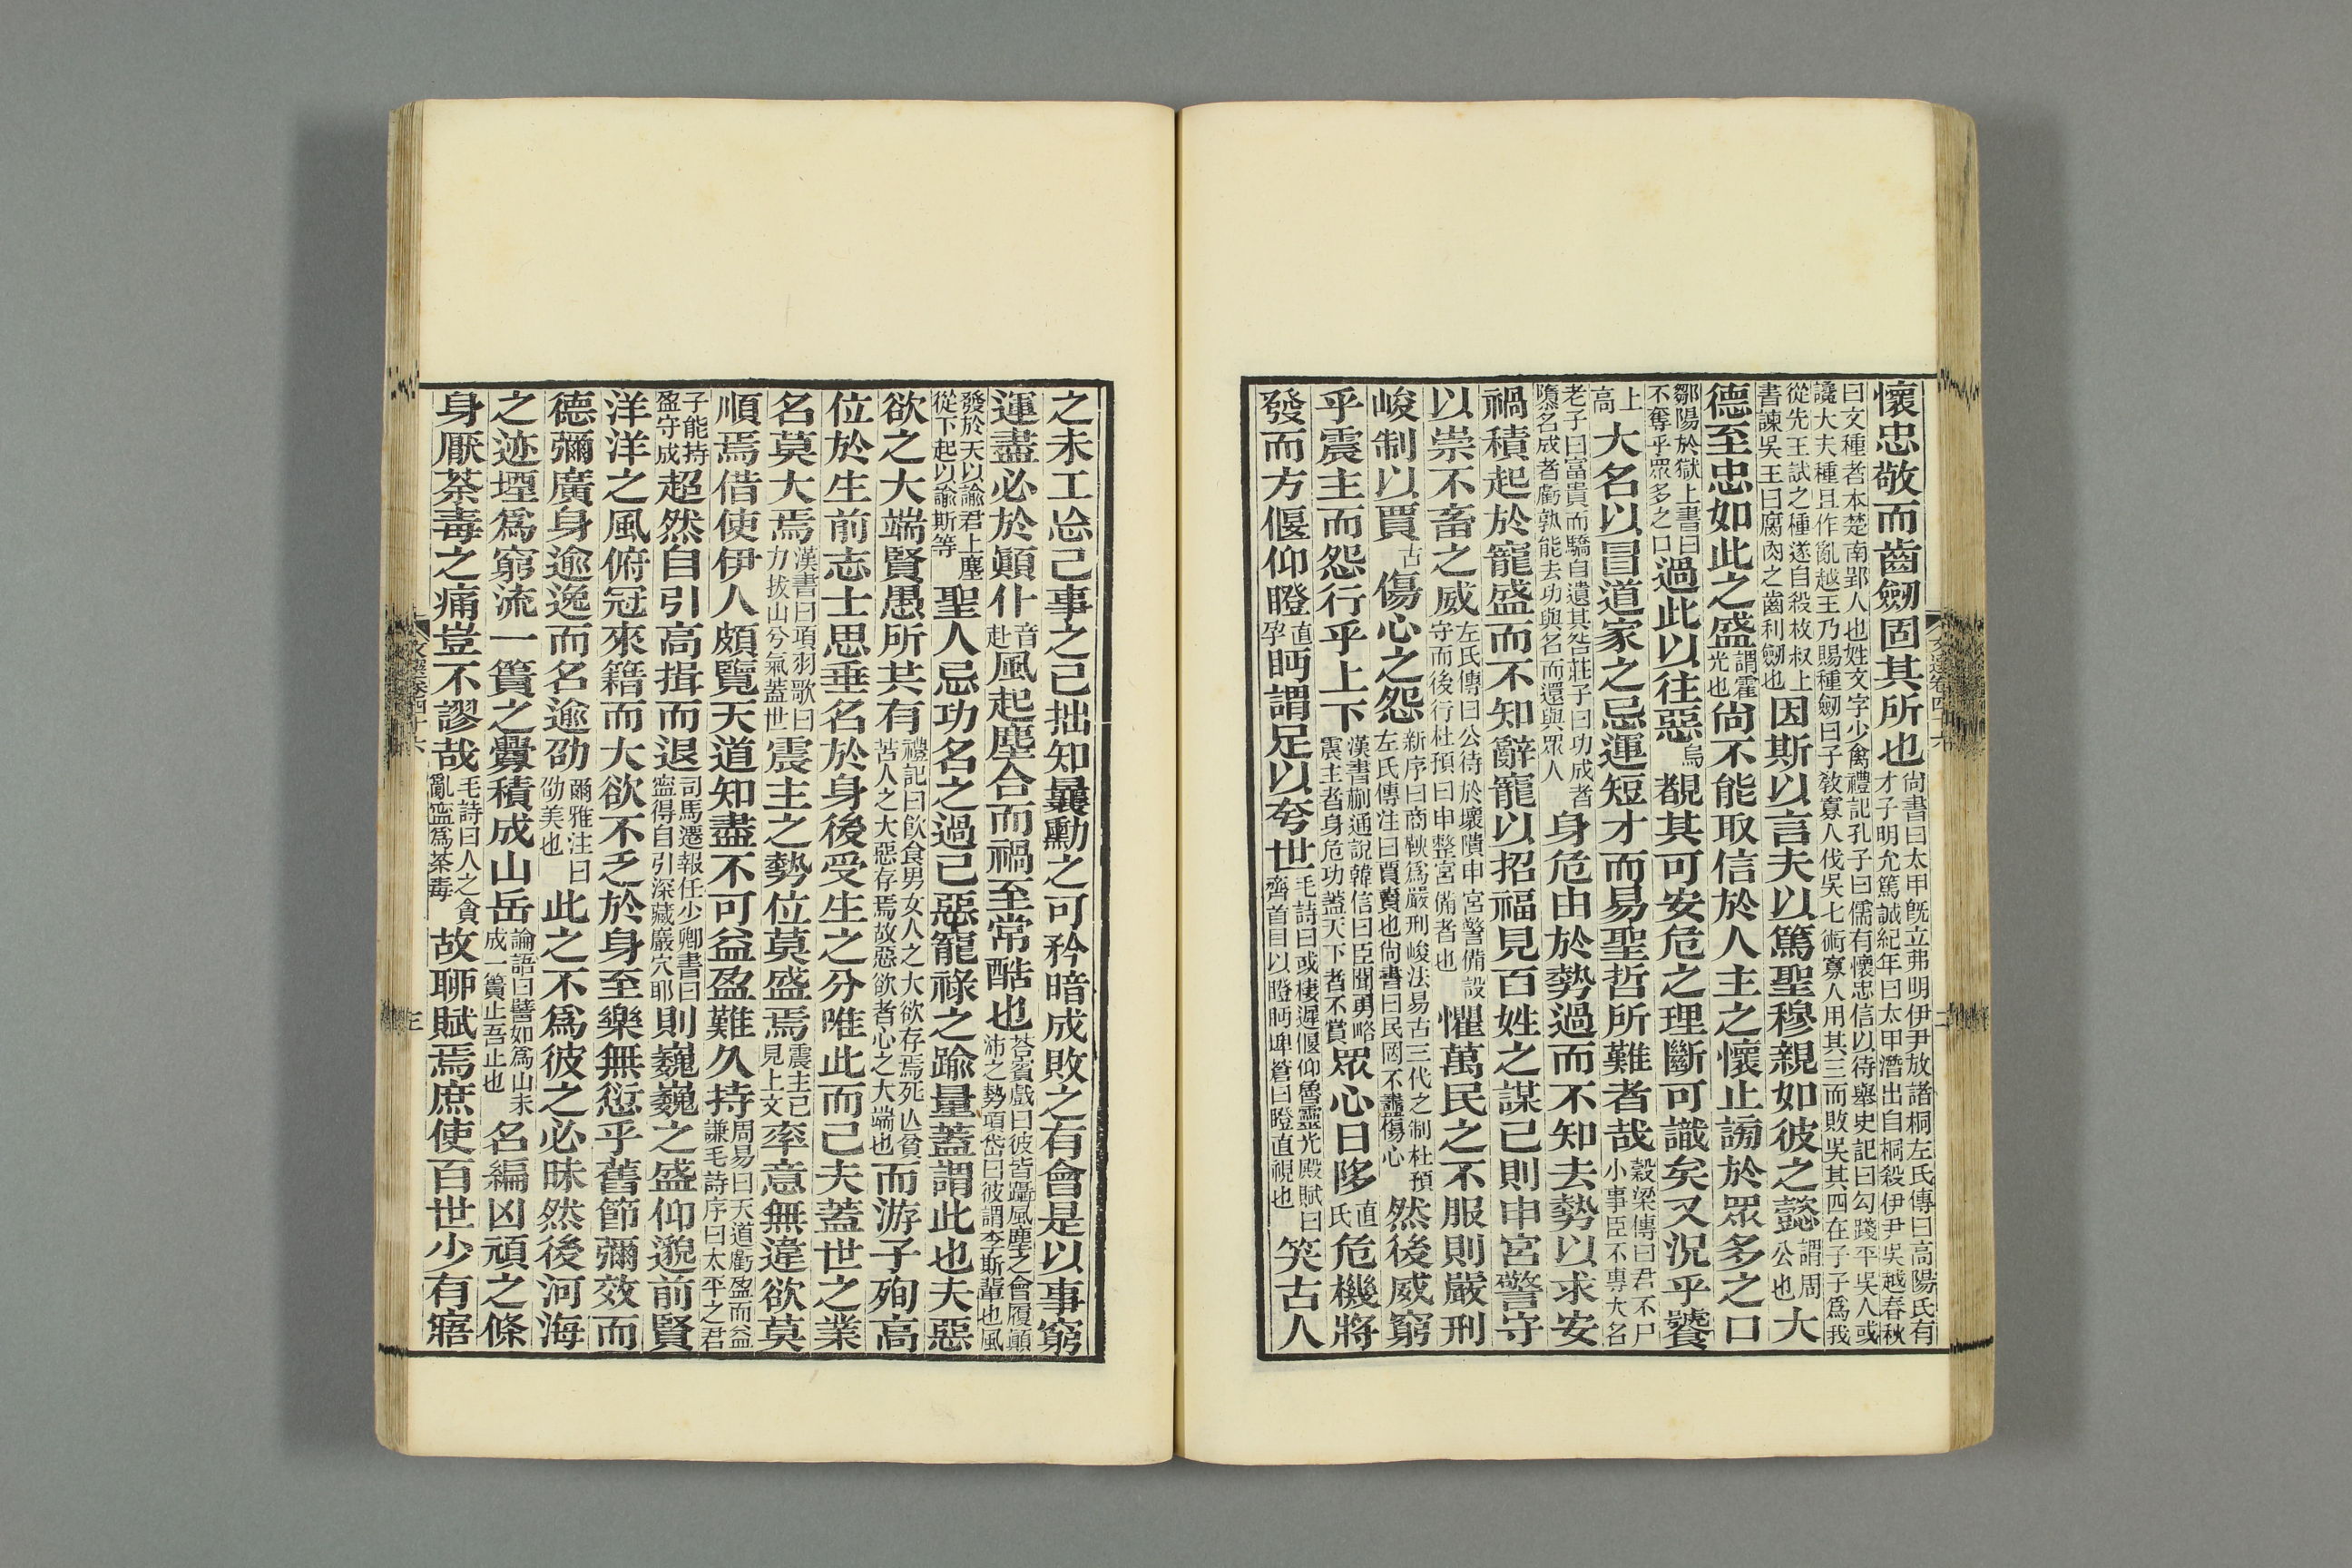 懷忠敬而齒劒固其所也尚書曰太甲旣立弗明伊尹放諸桐左氏傳曰高陽氏有才子明允篤誠紀年曰太甲潛出自桐殺伊尹吳越春秋
曰文種者本楚南郢人也姓文字少禽禮記孔子曰儒有懷忠信以待舉史記曰勾踐平吳人或
讒大夫種且作亂越王乃賜種劒曰子敎寡人伐吳七術寡人用其三而敗吳其四在子子爲我
從先王試之種遂自殺枚叔上書諫吳王曰腐肉之齒利劒也因斯以言夫以篤聖穆親如彼之懿謂周公也大
德至忠如此之盛謂霍光也尚不能取信於人主之懷止謗於眾多之口
鄒陽於獄上書曰不奪乎眾多之口過此以往惡烏覩其可安危之理斷可識矣又況乎饕
上高大名以冒道家之忌運短才而易聖哲所難者哉穀梁傳曰君不尸小事臣不專大名
老子曰富貴而驕自遺其咎莊子曰功成者隳名成者虧孰能去功與名而還與眾人身危由於勢過而不知去勢以求安
禍積起於寵盛而不知辭寵以招福見百姓之謀己則申宮警守
以崇不畜之威左氏傳曰公待於壞隤申宮警備設守而後行杜預曰申整宮備者也懼萬民之不服則嚴刑
峻制以賈古傷心之怨新序曰商鞅爲嚴刑峻法易古三代之制杜預左氏傳注曰賈賣也尚書曰民罔不衋傷心然後威窮
乎震主而怨行乎上下漢書蒯通說韓信曰臣聞勇略震主者身危功蓋天下者不賞眾心日陊直氏危機將
發而方偃仰瞪直孕眄謂足以夸世毛詩曰或棲遲偃仰魯靈光殿賦曰齊首目以瞪眄埤蒼曰瞪直視也笑古人
文選卷四十六
二
之未工忘己事之已拙知曩勳之可矜暗成敗之有會是以事窮
運盡必於顚仆音赴風起塵合而禍至常酷也荅賓戲曰彼皆躡風塵之會履顚沛之勢項岱曰彼謂李斯輩也風
發於天以諭君上塵從下起以諭斯等聖人忌功名之過己惡寵祿之踰量蓋謂此也夫惡
欲之大端賢愚所共有禮記曰飮食男女人之大欲存焉死亾貧苦人之大惡存焉故惡欲者心之大端也而游子殉高
位於生前志士思垂名於身後受生之分唯此而已夫蓋世之業
名莫大焉漢書曰項羽歌曰力拔山兮氣蓋世震主之勢位莫盛焉震主已見上文率意無違欲莫
順焉借使伊人頗覽天道知盡不可益盈難久持周易曰天道虧盈而益謙毛詩序曰太平之君
子能持盈守成超然自引高揖而退司馬遷報任少卿書曰寍得自引深藏巖穴耶則巍巍之盛仰邈前賢
洋洋之風俯冠來籍而大欲不乏於身至樂無愆乎舊節彌效而
德彌廣身逾逸而名逾劭爾雅注曰劭美也此之不爲彼之必昧然後河海
之迹堙爲窮流一簣之釁積成山岳論語曰譬如爲山未成一簣止吾止也名編凶頑之條
身厭荼毒之痛豈不謬哉毛詩曰人之貪亂寍爲荼毒故聊賦焉庶使百世少有寤
文選卷四十六
三